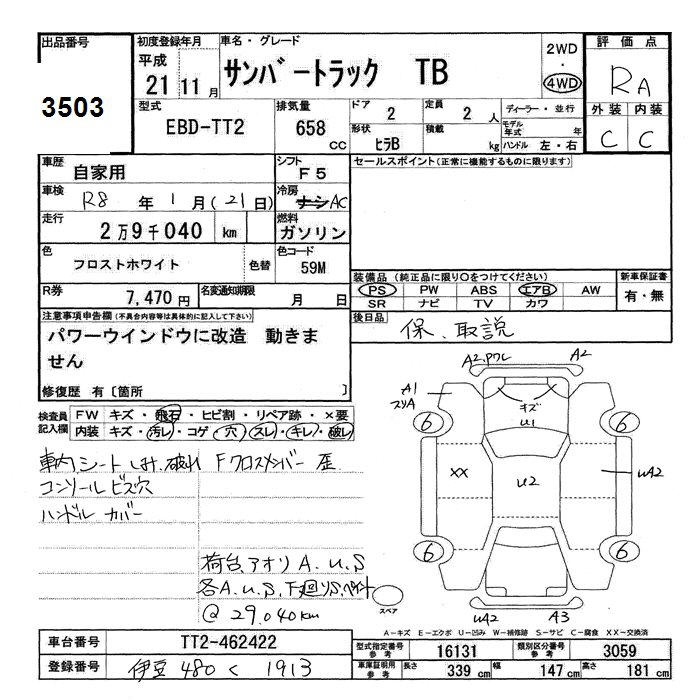 出品番号
3503
初度登録年月
平成
21 11月
車名・グレード
サンバートラック TB
2WD
・
4WD
評価点
RA
外装 内装
C C
型式
EBD-TT2
排気量
658
cc
ドア
2
定員
2 人
ディーラー・並行
形状
ヒラB
積載
kg
モデル年式
年
ハンドル 左・右
車歴
自家用
シフト
F5
セールスポイント(正常に機能するものに限ります)
車検
R8 年 1 月(21日)
冷房
ナシ AC
走行
2万9千040 km
燃料
ガソリン
色
フロストホワイト
色替
色コード
59M
装備品(純正品に限り○をつけてください)
新車保証書
PS PW ABS エアB AW
SR ナビ TV カワ
有・無
R券
7,470円
名変通知期限
月 日
後日品
保、取説
注意事項申告欄(不具合内容等は具体的に記入して下さい)
パワーウインドウに改造 動きま
せん
修復歴 有〔箇所 〕
検査員
記入欄
FW キズ・飛石・ヒビ割・リペア跡・×要
内装 キズ・汚レ・コゲ・穴・スレ・キレ・破レ
車内、シートしみ、破れ Fクロスメンバー歪
コンソールビス穴
ハンドルカバー
荷台、アオリ A.U.S
各A.U.S、F廻りS、ペイント
@ 29,040km
A2,ワレ A2
A1
スリA
6 6
キズ
U1
XX
U2
UA2
6 6
スペア
UA2 A3
A-キズ E-エクボ U-凹み W-補修跡 S-サビ C-腐食 XX-交換済
車台番号
TT2-462422
型式指定番号
参考
16131
類別区分番号
参考
3059
登録番号
伊豆 480 く 1913
車庫証明用
参考
長さ
339 cm
幅
147 cm
高さ
181 cm